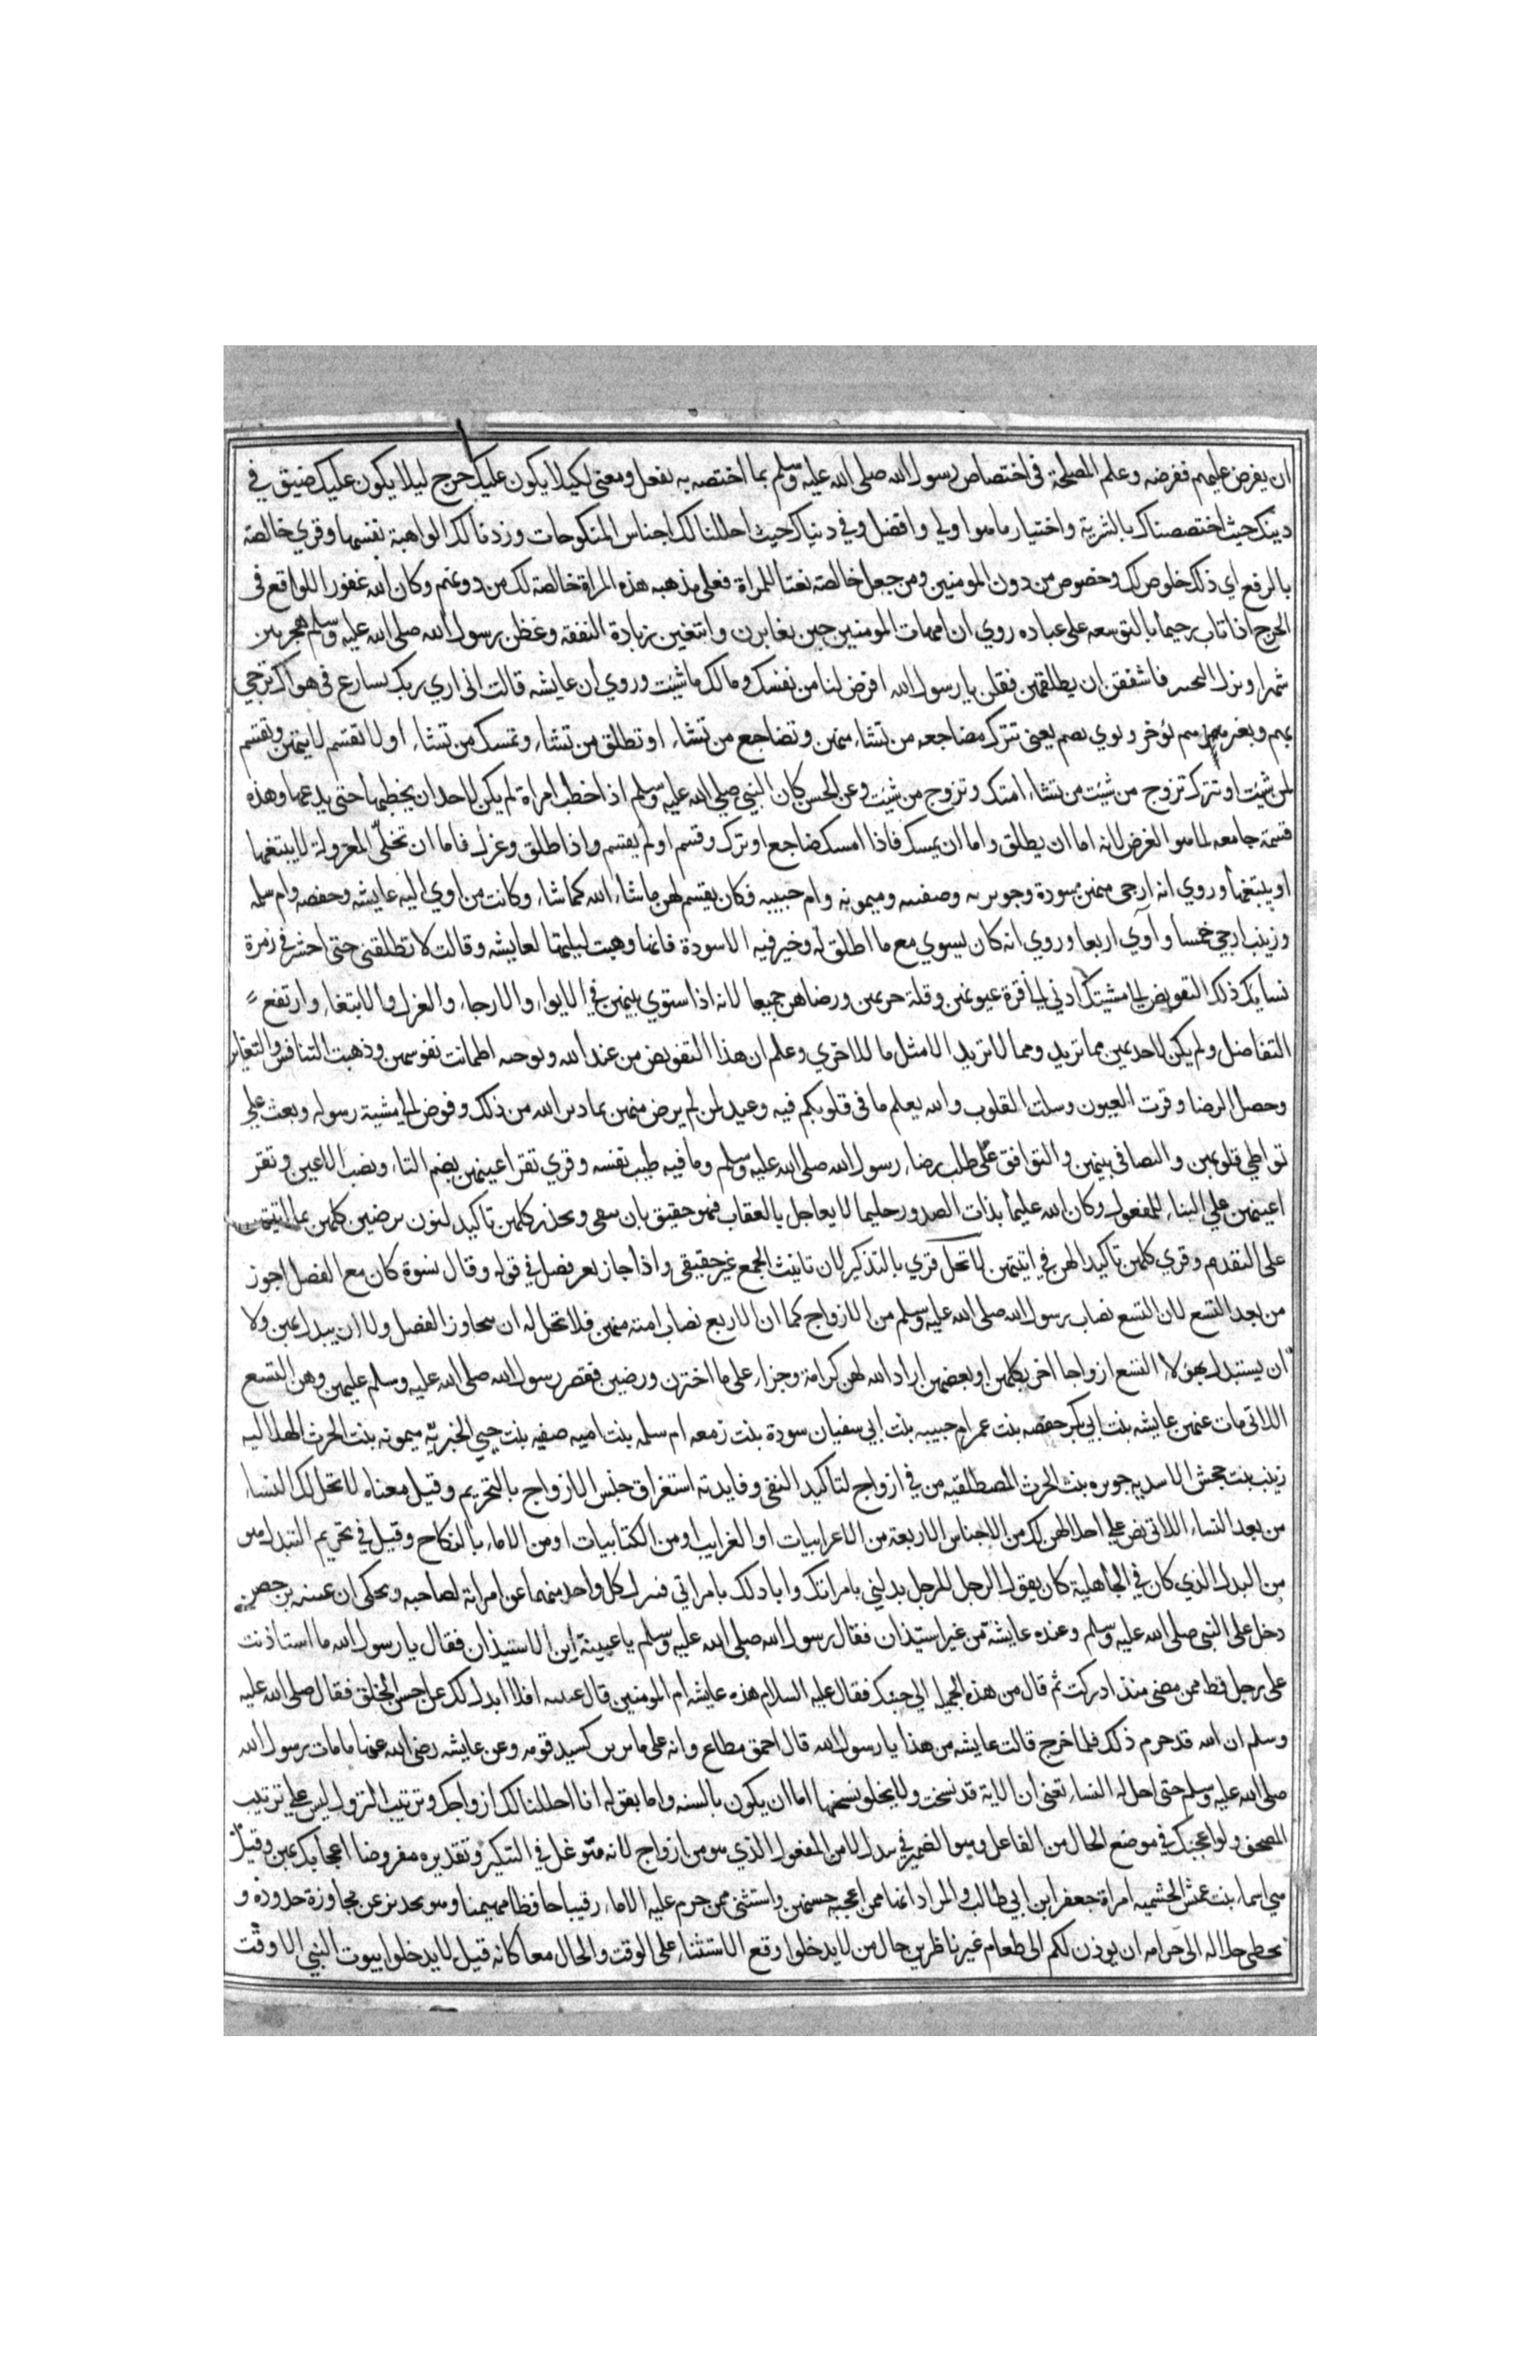 ان يفرض عليهم ففرضه وعلم المصلحة في اختصاص رسول الله صلى الله عليه وسلم بما اختصه به ففعل ومعنى لكيلا يكون عليك حرج ليلا يكون عليك ضيق في
دينك حيث اختصصناك بالتنزيه واختيار ما هو اولى وافضل وفي دنياك حيث احللنا لك اجناس المنكوحات وزدنا لك الواهبة نفسها وقري خالصة
بالرفع اي ذلك خلوص لك وخصوص من دون المومنين ومن جعل خالصة نعتا للمراة فعلى مذهبه هذه المراة خالصة لك من دونهم وكان الله غفورا للواقع في
الحرج اذا تاب رحيما بالتوسعه على عباده روي ان امهات المومنين حين تغايرن وابتغين زيادة النفقة وغظن رسول الله صلى الله عليه وسلم هجرهن
شهرا ونزل التخيير فاشفقن ان يطلقهن فقلن يا رسول الله افرض لنا من نفسك ومالك ما شيت وروي ان عايشه قالت اني اري ربك يسارع في هواك ترجي
بهمز وبغير همز تؤخر وتوي تضم يعني تترك مضاجعه من تشاء منهن وتضاجع من تشاء او تطلق من تشاء وتمسك من تشاء او لا تقسم لايتهن وتقسم
لمن شيت او تترك تزوج من شيت من نشاء امتك وتزوج من شيت وعن الحسن كان النبي صلي الله عليه وسلم اذا خطب امراة لم يكن لاحد ان يخطبها حتى يدعها وهذه
قسمة جامعه لما هو الغرض لانه اما ان يطلق واما ان يمسك فاذا امسك ضاجع او ترك وقسم او لم يقسم واذا طلق وعزل فاما ان تخلّي المعزولة لا يبتغيها
او يبتغيها وروي انه ارجى منهن سودة وجويريه وصفيه وميمونه وام حبيبه فكان يقسم لهن ما شاء الله كما شاء وكانت من اوي اليه عايشه وحفصه وام سلمه
وزينب ارجي خمسا وآوي اربعا وروي انه كان يسوي مع ما اطلق له وخير فيه الا سودة فانها وهبت ليلتها لعايشه وقالت لا تطلقني حتى احشر في زمرة
نسايك ذلك التفويض الى مشيتك ادني الى قرة عيونهن وقلة حزنهن ورضاهن جميعا لانه اذا استوي بينهن في الايواء والارجاء والعزل والابتغاء وارتفع
التفاضل ولم يكن لاحديهن مما تريد ومما لا تريد الا مثل ما للاخري وعلم ان هذا التفويض من عند الله وبوحيه اطمانت نفوسهن وذهبت التنافس والتغاير
وحصل الرضا وقرت العيون وسلت القلوب والله يعلم ما في قلوبكم فيه وعيد لمن لم يرض منهن بما دبر الله من ذلك وفوض الى مشية رسوله وبعث علي
تواطي قلوبهن والتصافي بينهن والتوافق على طلب رضاء رسول الله صلى الله عليه وسلم وما فيه طيب نفسه وقري تقر اعينهن بضم التاء ونصب الاعين وتقر
اعينهن علي البناء للمفعول وكان الله عليما بذات الصدور حليما لا يعاجل بالعقاب فهو حقيق بان يتقى ويحذر كلهن تاكيد لنون يرضين كلهن بما اتيتهن
على التقدم وقري كلهن تاكيدا لهن في اتيتهن لا تحل قري بالتذكير لان تانيث الجمع غير حقيقي واذا جاز بغير فصل في قوله وقال نسوة كان مع الفصل اجوز
من بعد التسع لان التسع نصاب رسول الله صلى الله عليه وسلم من الازواج كما ان الاربع نصاب امته منهن فلا تحل له ان يتجاوز الفصل ولا ان يبدل بهن ولا
ان يستبدل بهؤلا التسع ازواجا اخر بكلهن او بعضهن اراد الله لهن كرامة وجزاء على ما اخترن ورضين فقصر رسول الله صلى الله عليه وسلم عليهن وهن التسع
اللاتي مات عنهن عايشه بنت ابي بكر حفصه بنت عمر ام حبيبه بنت ابي سفيان سودة بنت زمعه ام سلمه بنت اميه صفيه بنت حيي الخبريه ميمونه بنت الحرث الهلاليه
زينب بنت جحش الاسديه جويره بنت الحرث المصطلقيه من في ازواج لتاكيد النفي وفايدته استغراق جنس الازواج بالتحريم وقيل معناه لا تحل لك النساء
من بعد النساء اللاتي نص علي احلالهن لك من الاجناس الاربعة من الاعرابيات او الغرايب او من الكتابيات او من الاماء بالنكاح وقيل في تحريم التبدل هو
من البدل الذي كان في الجاهلية كان يقول الرجل للرجل بدلني بامراتك وابادلك بامراتي فينزل كل واحد منهما عن امراته لصاحبه ويحكى ان عيينه بن حصن
دخل على النبي صلى الله عليه وسلم وعنده عايشة من غير استيذان فقال رسول الله صلى الله عليه وسلم يا عيينة اين الاستيذان فقال يا رسول الله ما استاذنت
على رجل قط ممن مضى منذ ادركت ثم قال من هذه الجميلة الى جنبك فقال عليه السلام هذه عايشه ام المومنين قال عيينه افلا ابدل لك عن احسن الخلق فقال صلى الله عليه
وسلم ان الله قد حرم ذلك فلما خرج قالت عايشه من هذا يا رسول الله قال احمق مطاع وانه على ما ترين لسيد قومه وعن عايشه رضي الله عنها ما مات رسول الله
صلى الله عليه وسلم حتى احل له النساء تعني ان الاية قد نسخت ولا يخلو نسخها اما ان يكون بالسنه واما بقوله انا احللنا لك ازواجك وترتيب النزول ليس علي ترتيب
المصحف ولو اعجبك في موضع الحال من الفاعل وهو الضمير في تبدل لا من المفعول الذي هو من ازواج لانه متوغل في التنكير وتقديره مفروضا اعجابك بهن وقيل
هي اسماء بنت عميس الخثعميه امراة جعفر ابن ابي طالب والمراد انها ممن اعجبه حسنهن واستثنى ممن حرم عليه الاماء رقيبا حافظا مهيمنا وهو تحذير عن مجاوزة حدوده و
تخطي حلاله الى حرامه ان يوذن لكم الى طعام غير ناظرين حال من لا يدخلوا وقع الاستثناء على الوقت والحال معا كانه قيل لا يدخلوا بيوت النبي الا وقت